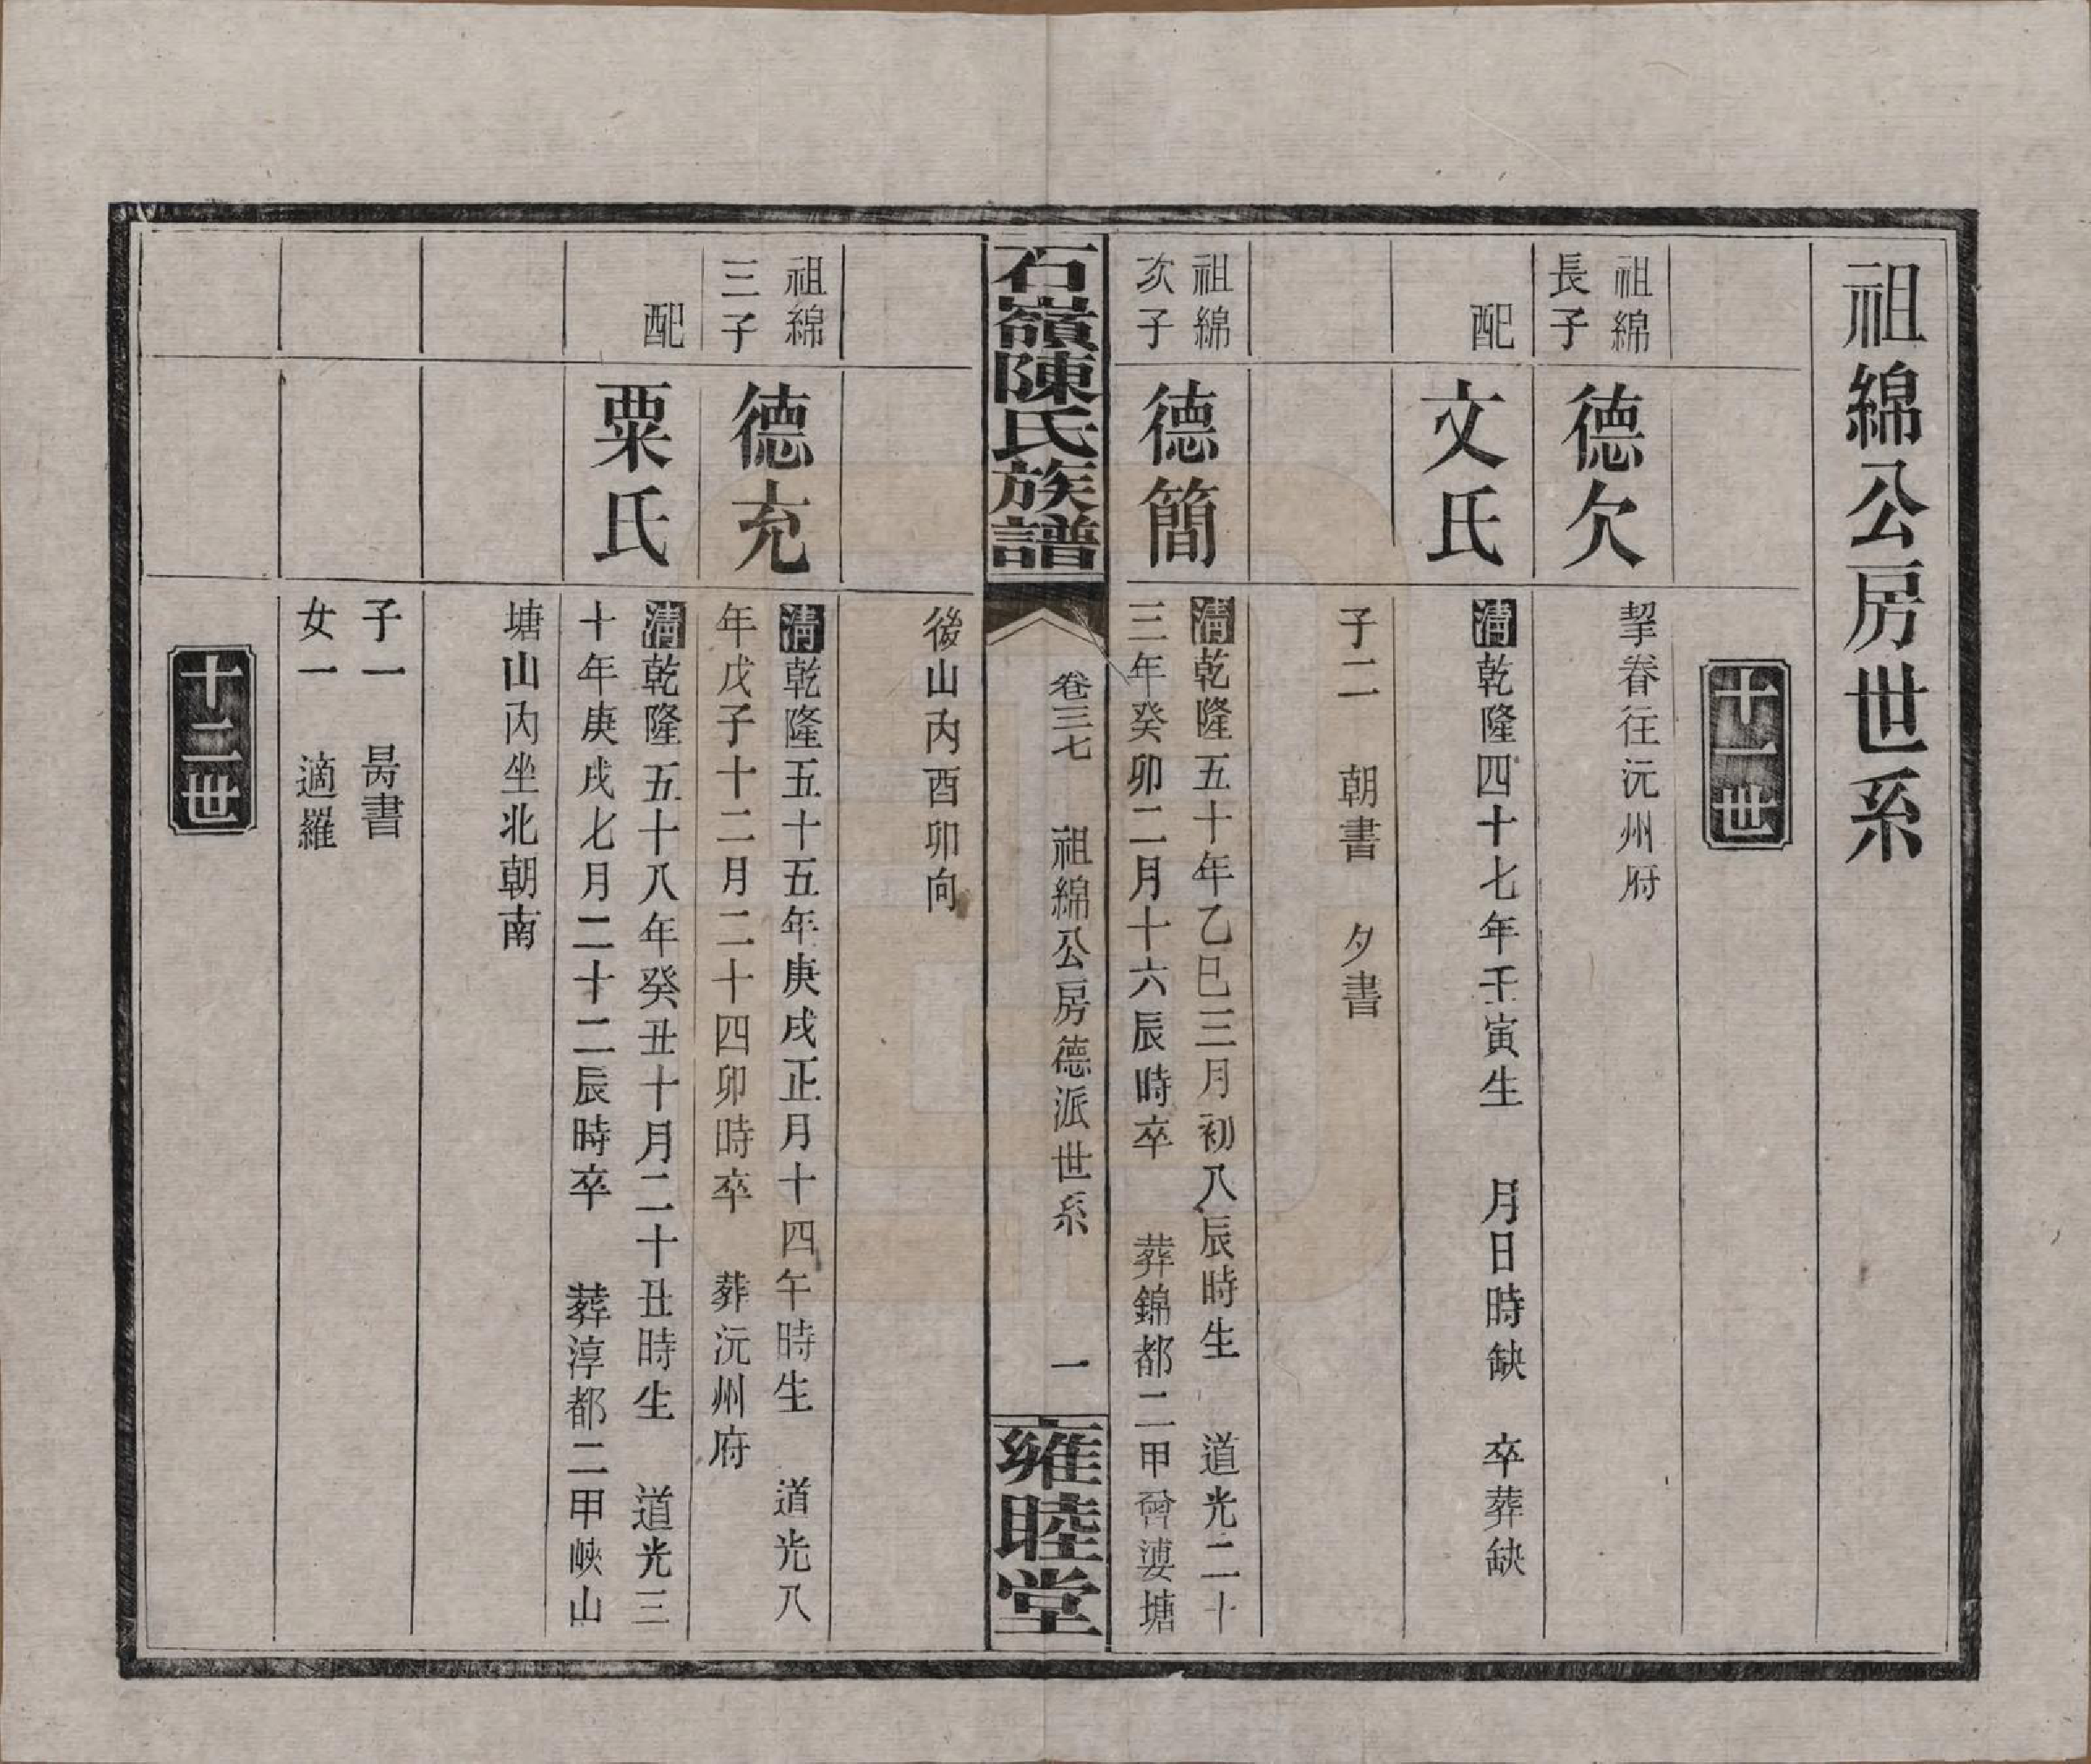 祖綿公房世系
十一世
祖綿
長子
德欠
挈眷往沅州府
配
文氏
清乾隆四十七年壬寅生 月日時缺 卒葬缺
子二 朝書 夕書
祖綿
次子
德簡
清乾隆五十年乙巳三月初八辰時生 道光二十
三年癸卯二月十六辰時卒 葬錦都二甲曾婆塘
石嶺陳氏族譜
卷三七 祖綿公房德派世系 一
雍睦堂
後山內酉卯向
祖綿
三子
德充
清乾隆五十五年庚戌正月十四午時生 道光八
年戊子十二月二十四卯時卒 葬沅州府
配
粟氏
清乾隆五十八年癸丑十月二十丑時生 道光三
十年庚戌七月二十二辰時卒 葬淳都二甲峽山
塘山內坐北朝南
子一 昺書
女一 適羅
十二世